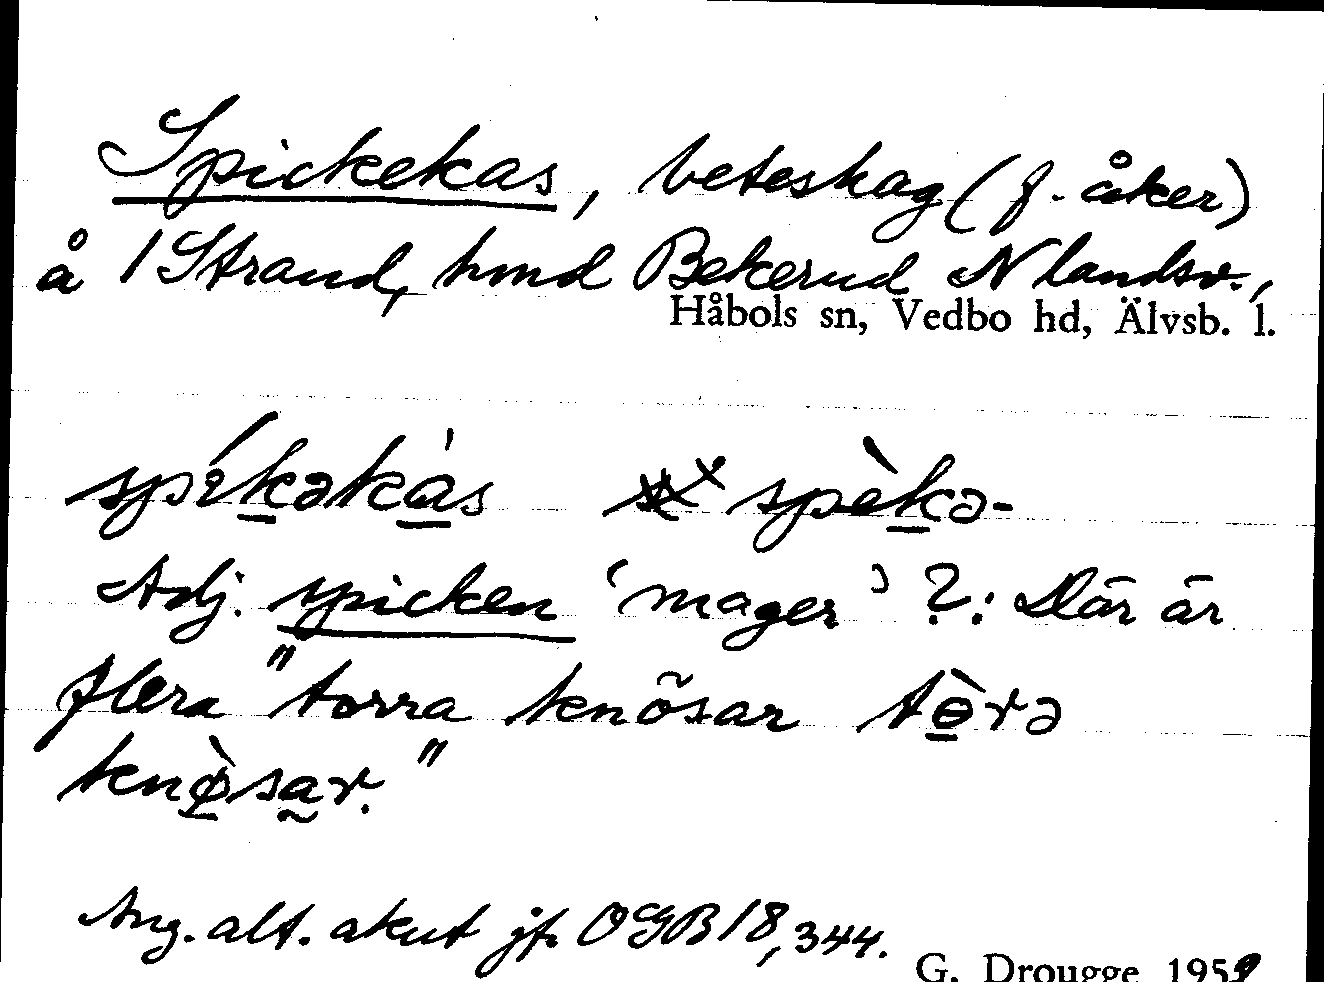 Spickekas, beteshag (f. åker)
å 1 Strand, hmd Bekerud N landsv.,
Håbols sn, Vedbo hd, Älvsb. l.
spíkəkàs spèkə-
Adj. spicken 'mager' ?: Där är
flera "torra knösar tɵ̀rə
knø̀sar."
Ang. alt. akut jfr OGB 18, 344.
G. Drougge 1959